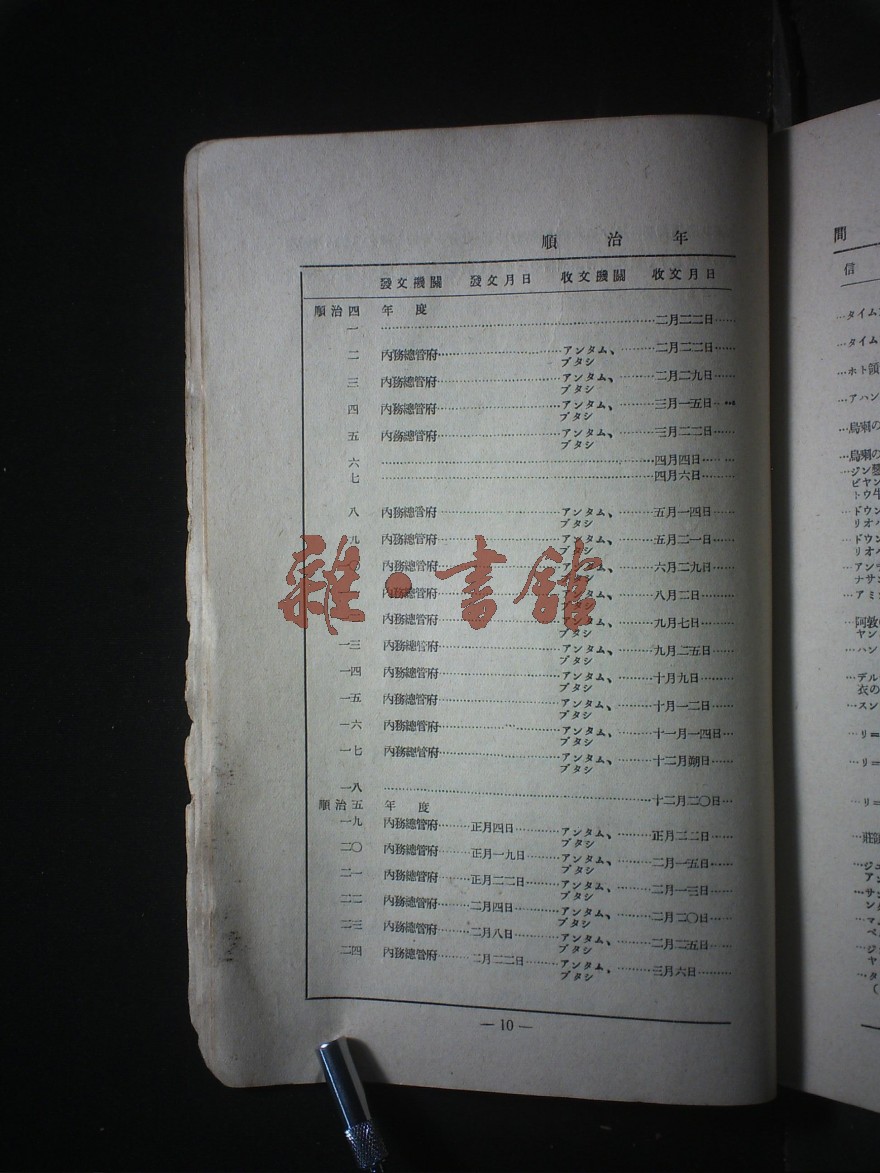 順治年
發文機關 發文月日 收文機關 收文月日
順治四年度
一……二月二二日……
二 內務總管府……アンタム、……二月二二日……
ブタシ
三 內務總管府……アンタム、……二月二九日……
ブタシ
四 內務總管府……アンタム、……三月一五日……
ブタシ
五 內務總管府……アンタム、……三月二二日……
ブタシ
六……四月四日……
七……四月六日……
八 內務總管府……アンタム、……五月一四日……
ブタシ
九 內務總管府……アンタム、……五月二一日……
ブタシ
〇 內務總管府……アンタム、……六月二九日……
內務總管府……アンタム、……八月二日……
內務總管府……アンタム、……九月七日……
ブタシ
一三 內務總管府……アンタム、……九月二五日……
ブタシ
一四 內務總管府……アンタム、……十月九日……
ブタシ
一五 內務總管府……アンタム、……十月一二日……
ブタシ
一六 內務總管府……アンタム、……十一月一四日…
ブタシ
一七 內務總管府……アンタム、……十二月朔日…
ブタシ
一八……十二月二〇日…
順治五年度
一九 內務總管府……正月四日……アンタム、……正月二二日……
ブタシ
二〇 內務總管府……正月一九日……アンタム、……二月一五日……
ブタシ
二一 內務總管府……正月二二日……アンタム、……二月一三日……
ブタシ
二二 內務總管府……二月四日……アンタム、……二月二〇日……
ブタシ
二三 內務總管府……二月八日……アンタム、……二月二五日……
ブタシ
二四 內務總管府……二月二二日……アンタム、……三月六日……
ブタシ
— 10 —
雜·書館
間
信
…タイム
…タイム
…ホト領
…アハン
…烏喇の
…烏喇の
…ジン
ビヤン
トウ牛
…ドウン
リオハ
…ドウン
リオハ
…アン
ナサン
…アミ
阿敦の
ヤン
…ハン
…デル
衣の
…スン
…リ=
…リ=
…リ=